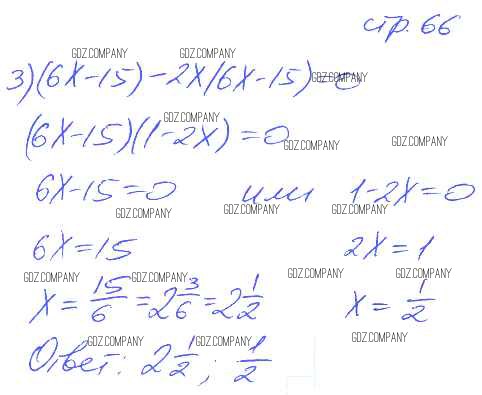 стр. 66
GDZ.COMPANY GDZ.COMPANY
3) (6x-15) - 2x(6x-15) = 0
GDZ.COMPANY
GDZ.COMPANY
(6x-15)(1-2x) = 0
GDZ.COMPANY GDZ.COMPANY
6x-15=0 или 1-2x=0
GDZ.COMPANY GDZ.COMPANY GDZ.COMPANY
6x=15 2x=1
GDZ.COMPANY GDZ.COMPANY GDZ.COMPANY GDZ.COMPANY
x = 15/6 = 2 3/6 = 2 1/2 x = 1/2
GDZ.COMPANY GDZ.COMPANY GDZ.COMPANY
Ответ: 2 1/2 ; 1/2